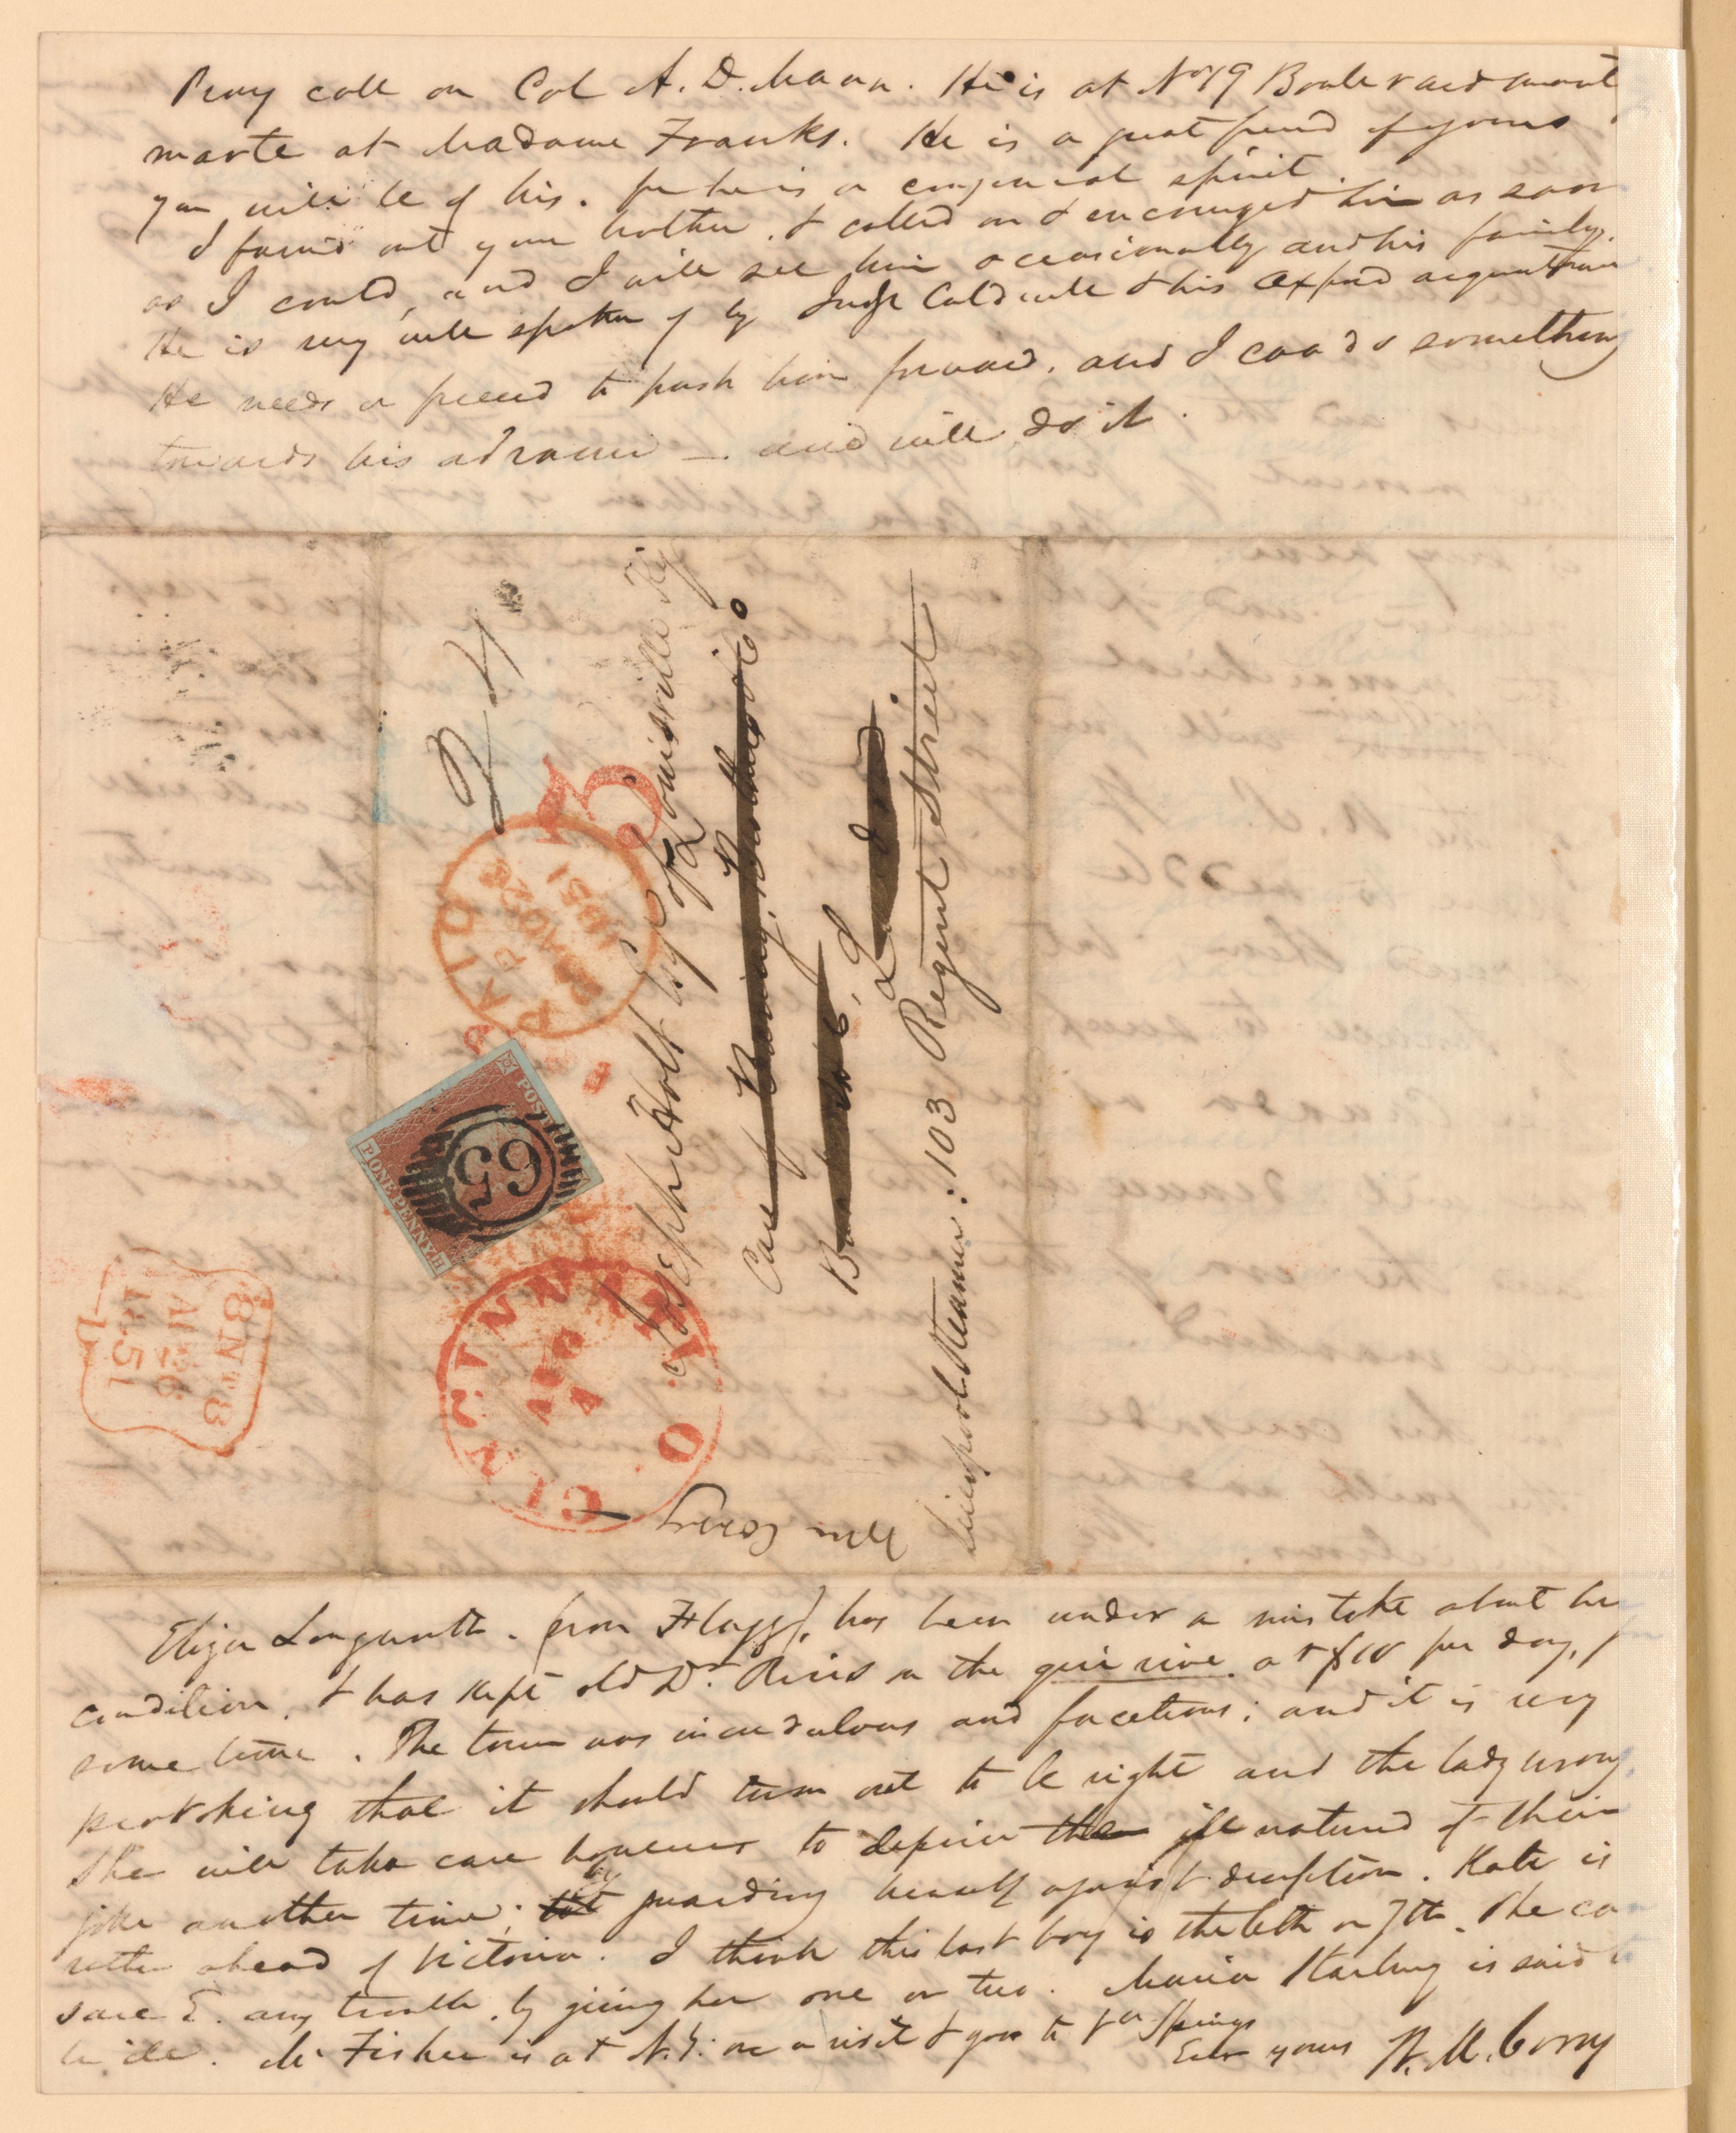 Pray call on Col A. D. Mann. He is at No 19 Boulevard mont
marte at Madame Franks. He is a great friend of yours
you will be of his. for he is a congenial spirit.
I found out your brother. & called on & encouraged him as soon
as I could, and I will see him occasionally and his family.
He is very well spoken of by Judge Caldwell & his Oxford
He needs a friend to push him forward, and I can do something
towards his advance — and will do it.
24
5
PAID
1851
POSTAGE
ONE PENNY
P H
65
CINCINNATI O.
AUG
4
8 NT 8
AU 26
1851
Joseph Holt Esqr of Louisville Ky
Care of Baring, Brothers & Co
London
103 Regent Street
Liverpool Steamer:
Wm Corry
Eliza Longworth. (now Flagg), has been under a mistake about her
condition, & has kept old Dr. on the qui vive at $10 per day, f
some time. The town was incredulous and facetious; and it is very
provoking that it should turn out to be right and the lady wrong.
She will take care however to deprive the ill natured of their
joke another time; by guarding herself against deception. Kate is
rather ahead of Victoria. I think this last boy is the 6th or 7th. She ca
save E. any trouble, by giving her one or two. Maria is said t
be ile. Mr Fisher is at N.Y. on a visit & goes to Springs
Ever yours W. M. Corry